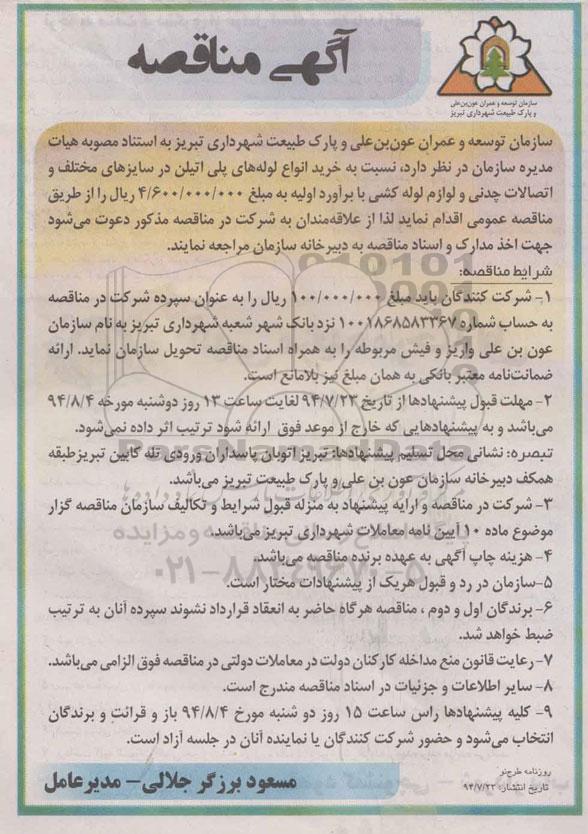 آگهی مناقصه
سازمان توسعه و عمران عون‌بن‌علی
و پارک طبیعت شهرداری تبریز
سازمان توسعه و عمران عون‌بن‌علی و پارک طبیعت شهرداری تبریز به استناد مصوبه هیات
مدیره سازمان در نظر دارد، نسبت به خرید انواع لوله‌های پلی اتیلن در سایزهای مختلف و
اتصالات چدنی و لوازم لوله کشی با برآورد اولیه به مبلغ ۴/۶۰۰/۰۰۰/۰۰۰ ریال را از طریق
مناقصه عمومی اقدام نماید لذا از علاقه‌مندان به شرکت در مناقصه مذکور دعوت می‌شود
جهت اخذ مدارک و اسناد مناقصه به دبیرخانه سازمان مراجعه نمایند.
شرایط مناقصه:
۱- شرکت کنندگان باید مبلغ ۱۰۰/۰۰۰/۰۰۰ ریال را به عنوان سپرده شرکت در مناقصه
به حساب شماره ۱۰۰۱۸۶۸۵۸۳۳۶۷ نزد بانک شهر شعبه شهرداری تبریز به نام سازمان
عون بن علی واریز و فیش مربوطه را به همراه اسناد مناقصه تحویل سازمان نماید. ارائه
ضمانت‌نامه معتبر بانکی به همان مبلغ نیز بلامانع است.
۲- مهلت قبول پیشنهادها از تاریخ ۹۴/۷/۲۳ لغایت ساعت ۱۳ روز دوشنبه مورخه ۹۴/۸/۴
می‌باشد و به پیشنهادهایی که خارج از موعد فوق ارائه شود ترتیب اثر داده نمی‌شود.
تبصره: نشانی محل تسلیم پیشنهادها: تبریز اتوبان پاسداران ورودی تله کابین تبریز طبقه
همکف دبیرخانه سازمان عون بن علی و پارک طبیعت تبریز می‌باشد.
۳- شرکت در مناقصه و ارایه پیشنهاد به منزله قبول شرایط و تکالیف سازمان مناقصه گزار
موضوع ماده ۱۰ آیین نامه معاملات شهرداری تبریز می‌باشد.
۴- هزینه چاپ آگهی به عهده برنده مناقصه می‌باشد.
۵-سازمان در رد و قبول هریک از پیشنهادات مختار است.
۶- برندگان اول و دوم ، مناقصه هرگاه حاضر به انعقاد قرارداد نشوند سپرده آنان به ترتیب
ضبط خواهد شد.
۷- رعایت قانون منع مداخله کارکنان دولت در معاملات دولتی در مناقصه فوق الزامی می‌باشد.
۸- سایر اطلاعات و جزئیات در اسناد مناقصه مندرج است.
۹- کلیه پیشنهادها راس ساعت ۱۵ روز دو شنبه مورخ ۹۴/۸/۴ باز و قرائت و برندگان
انتخاب می‌شود و حضور شرکت کنندگان یا نماینده آنان در جلسه آزاد است.
روزنامه طرح‌نو
تاریخ انتشار: ۹۴/۷/۲۲
مسعود برزگر جلالی- مدیرعامل
ParsNamadData
۰۲۱-۸۸۳۴۹۶۷۰-۵